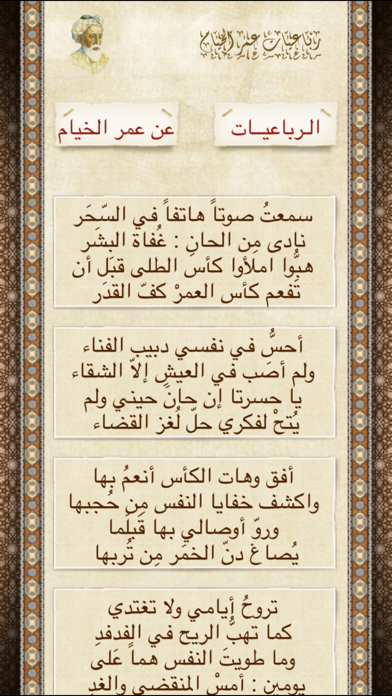 رباعيات عمر الخيام
الرباعيــات
عن عمر الخيام
سمعتُ صوتاً هاتفاً في السّحَر
نادى مِن الحانِ : غُفاة البشَر
هبُّوا املأوا كأس الطلى قبَل أن
تَفعم كأس العمرْ كفّ القدَر
أحسُّ في نفسي دبيب الفناء
ولم أصَب في العيشِ إلاّ الشقاء
يا حسرتا إن حانَ حيني ولم
يُتحْ لفكري حلّ لُغز القضاء
أفق وهات الكأس أنعمُ بها
واكشف خفايا النفس مِن حُجبها
وروّ أوصالي بها قَبلَما
يُصاغ دنّ الخمَر مِن تُربها
تروحُ أيامي ولا تغتدي
كما تهبُّ الريح في الفدفدِ
وما طويتَ النفس هماً عَلى
يومين : أمسْ المنقضي والغد